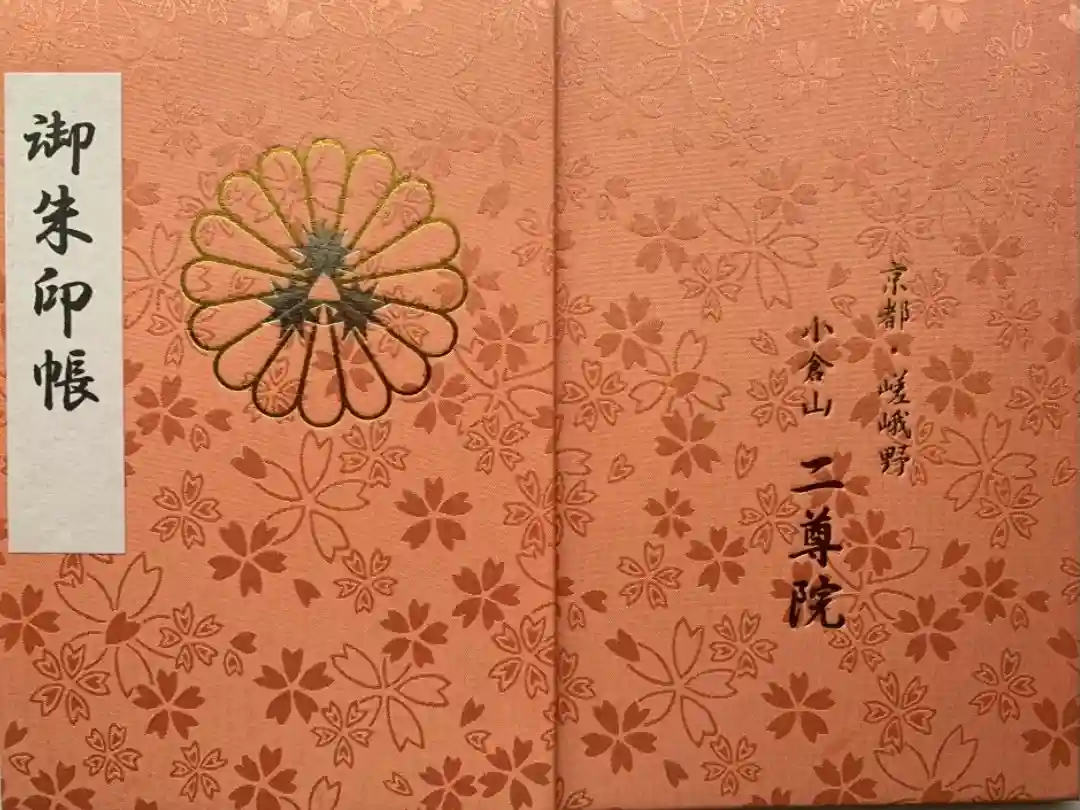 御朱印帳
京都・嵯峨野
小倉山
二尊院